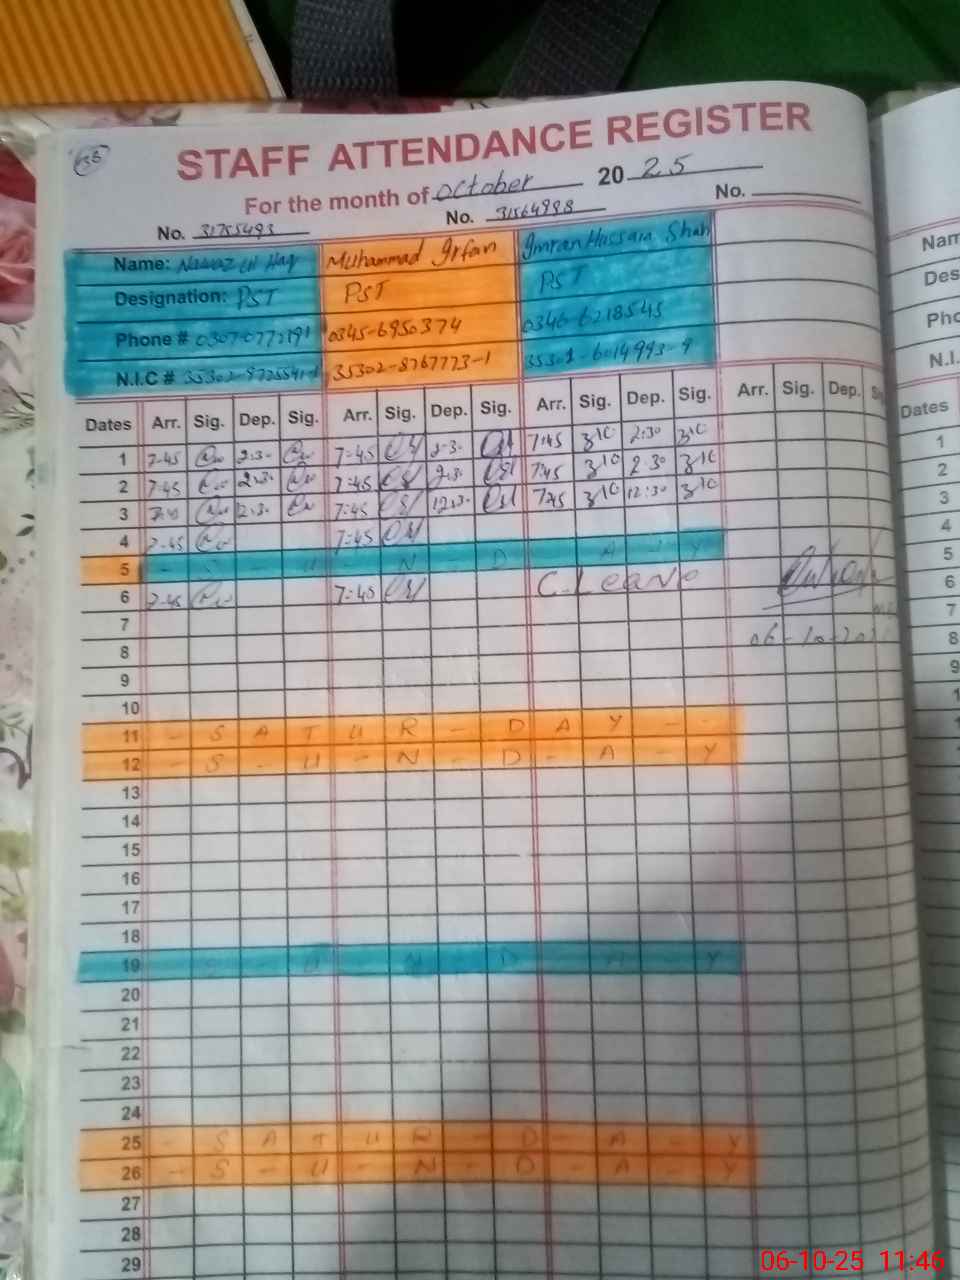 36
STAFF ATTENDANCE REGISTER
For the month of October 2025
No. 31755493 No. 31564998 No.
Name: Nawaz ul Haq Muhammad Irfan Imran Hussain Shah
Designation: PST PST PST
Phone # 0307-0772191 0345-6950374 0346-6218545
N.I.C # 35302-8767773-1 35301-6014993-9
Dates Arr. Sig. Dep. Sig. Arr. Sig. Dep. Sig. Arr. Sig. Dep. Sig. Arr. Sig. Dep.
1 7-45 2:30 7-45 2-30 7:45 2:30
2 7-45 2:30 7:45 2:30 7:45 2:30
3 7:45 12:30 7:45 12:30 7:45 12:30
4 7-45 7:45
5 - S - U - N - D - A - Y
6 7-45 7:45 C.Leave
7
8 06-10-2025
9
10
11 - S A T U R - D A Y - -
12 - S - U - N - D - A - Y
13
14
15
16
17
18
19 S - U - N - D - A - Y
20
21
22
23
24
25 - S A T U R - D - A - Y
26 - S - U - N - D - A - Y
27
28
29
Nam
Des
Pho
N.I.
Dates
1
2
3
4
5
6
7
8
9
06-10-25 11:46